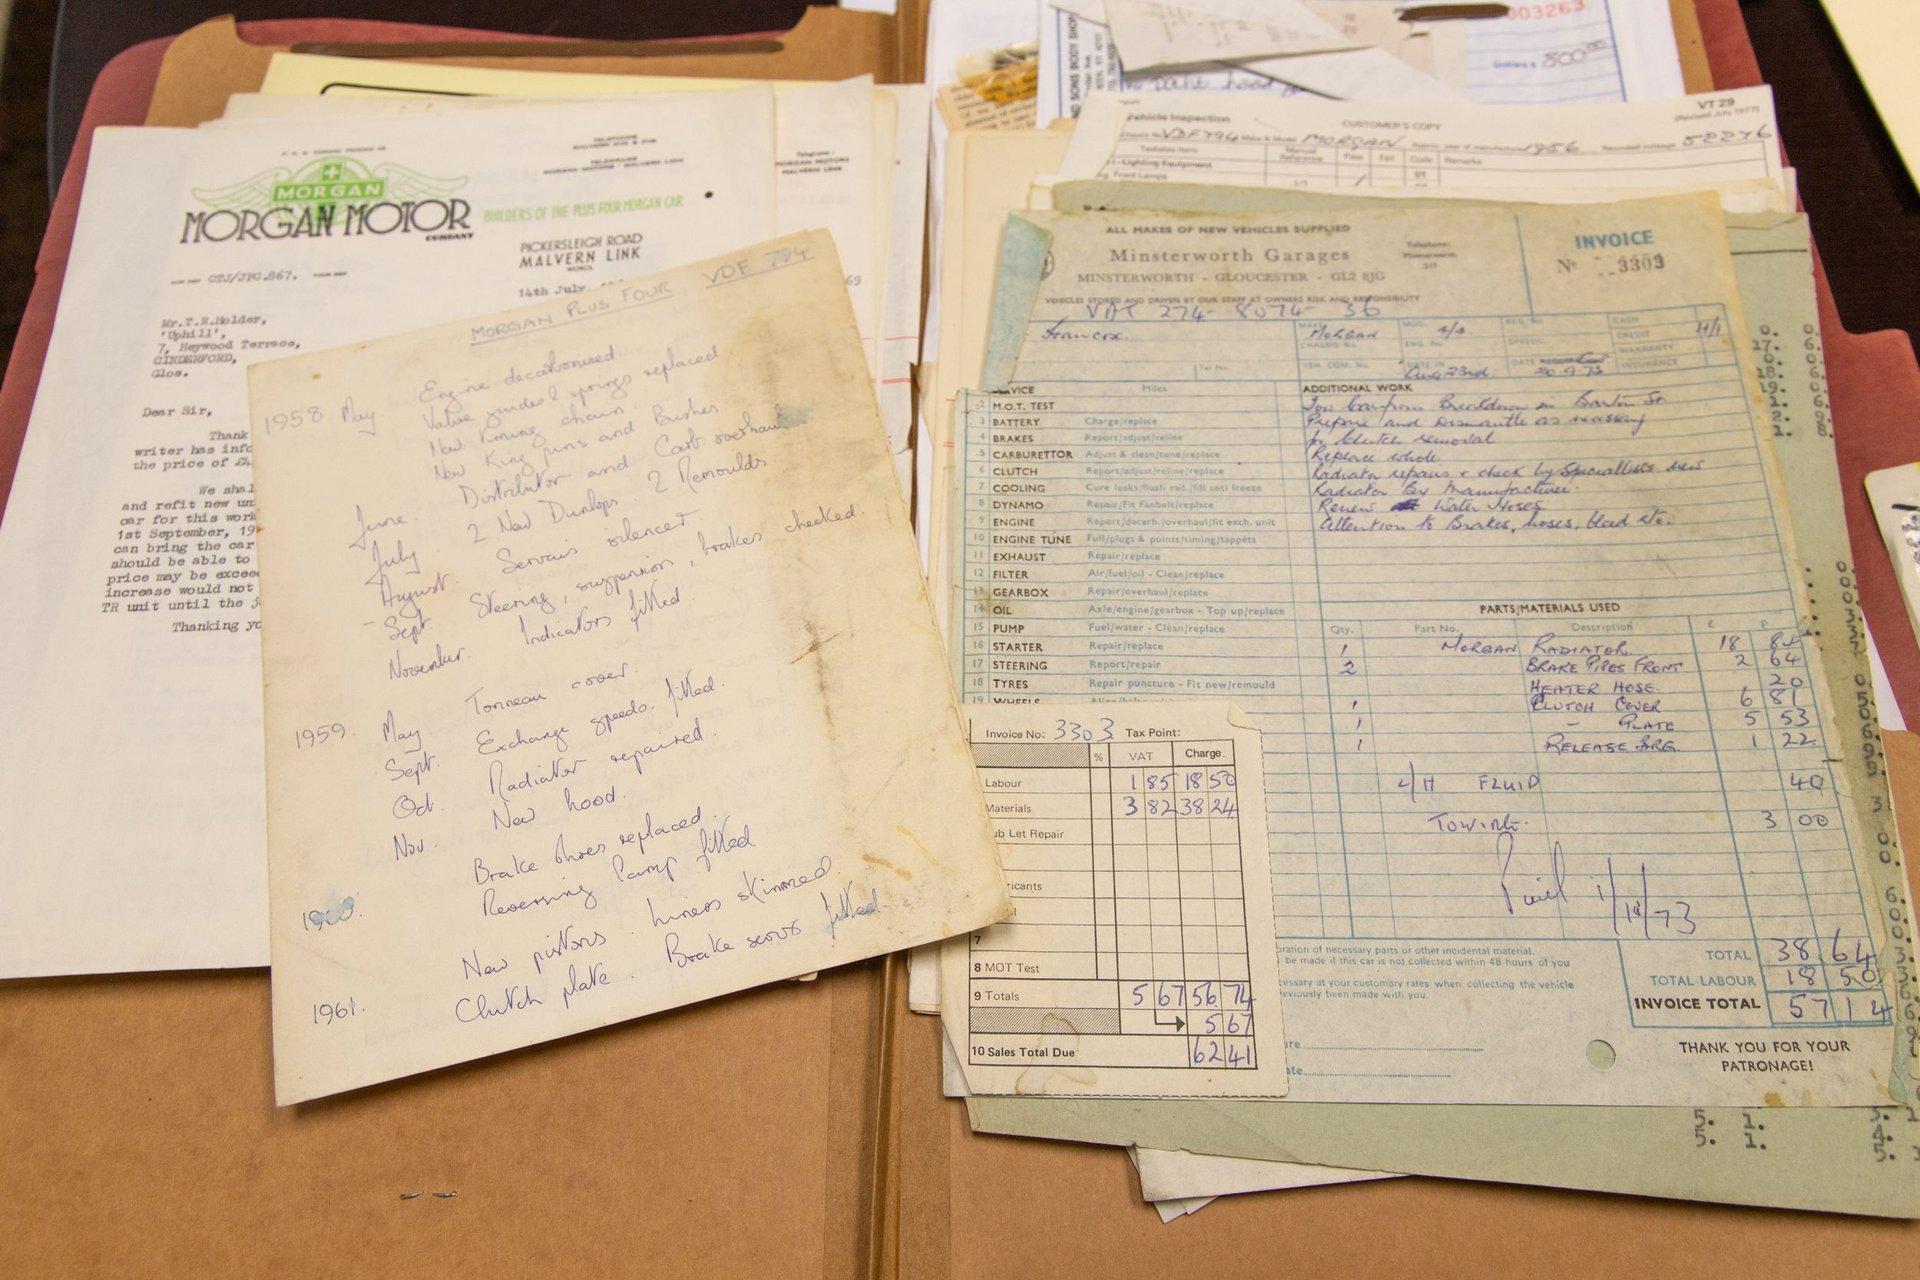 MORGAN
MORGAN MOTOR
COMPANY
BUILDERS OF THE PLUS FOUR MORGAN CAR
PICKERSLEIGH ROAD
MALVERN LINK
WORCS.
MORGAN MOTORS
MALVERN LINK
CTJ/JPC.867.
14th July,
69
Mr.T.R.Holder,
'Uphill',
7, Heywood Terrace,
CINDERFORD,
Glos.
Dear Sir,
Thank
writer has info
the price of £4
We shal
and refit new un
car for this work
1st September, 19
can bring the car
should be able to
price may be excee
increase would not
TR unit until the
Thanking yo
MORGAN PLUS FOUR VDF 794
1958 May. Engine decarbonised
Valve guides & springs replaced
New timing chain.
New King pins and Bushes
June. Distributor and Carb. overhaul
July 2 New Dunlops. 2 Remoulds
August. Servais silencer
Sept. Steering, suspension, brakes checked.
November. Indicators fitted.
1959. May Tonneau cover.
Sept. Exchange speedo. fitted.
Oct. Radiator repaired.
Nov. New hood.
1960. Brake shoes replaced.
Reversing lamp fitted
New pistons. liners skimmed.
1961. Clutch plate. Brake servo fitted.
003263
Dollars £ 500
hood
VT 29
(Revised July 1977)
Vehicle Inspection CUSTOMER'S COPY
VDF794 Make & Model MORGAN Approx year of manufacture 1956 Recorded mileage 52276
Testable Item Manual Reference Pass Fail Code Remarks
Lighting Equipment
Front Lamps
ALL MAKES OF NEW VEHICLES SUPPLIED
Minsterworth Garages
MINSTERWORTH - GLOUCESTER - GL2 8JG
Telephone:
Minsterworth
INVOICE
No 3303
VEHICLES STORED AND DRIVEN BY OUR STAFF AT OWNERS RISK AND RESPONSIBILITY
VAT 274- 8074- 36
Francox. MAKE MORGAN MOD. 4/4 CASH
CHASSIS No. ENG. No. SPEEDO. CREDIT H/1
WARRANTY
Tel No. VEH. COM. No. DATE IN Aug 23rd. DATE 30 9 73 INSURANCE
SERVICE Miles
2 M.O.T. TEST
3 BATTERY Charge/replace
4 BRAKES Report/adjust/reline
5 CARBURETTOR Adjust & clean/tune/replace
6 CLUTCH Report/adjust/reline/replace
7 COOLING Cure leaks/flush rad./fill anti freeze
8 DYNAMO Repair/Fit Fanbelt/replace
9 ENGINE Report/decarb./overhaul/fit exch. unit
10 ENGINE TUNE Full/plugs & points/timing/tappets
11 EXHAUST Repair/replace
12 FILTER Air/fuel/oil - Clean/replace
13 GEARBOX Repair/overhaul/replace
14 OIL Axle/engine/gearbox - Top up/replace
15 PUMP Fuel/water - Clean/replace
16 STARTER Repair/replace
17 STEERING Report/repair
18 TYRES Repair puncture - Fit new/remould
19 WHEELS
ADDITIONAL WORK
Tow car from Breakdown in Barton St
Prepare and Dismantle as necessary
for Clutch removal
Replace whole
Radiator repairs & check by Speciallists new
Radiator By Manufacturer.
Renew Water Hoses
Attention to Brakes, hoses, bleed etc.
PARTS/MATERIALS USED
Qty. Part No. Description £ P
1 MORGAN RADIATOR 18 84
2 BRAKE PIPES FRONT 2 64
HEATER HOSE. 20
1 CLUTCH COVER 6 81
1 - PLATE 5 53
1 RELEASE BRG. 1 22
L/H FLUID 40
TOWING. 3 00
Paid 1/10/73
TOTAL 38 64
TOTAL LABOUR 18 50
INVOICE TOTAL 57 14
THANK YOU FOR YOUR
PATRONAGE!
ration of necessary parts or other incidental material.
be made if this car is not collected within 48 hours of you
cessary at your customary rates when collecting the vehicle
eviously been made with you.
Invoice No: 3303 Tax Point:
% VAT Charge.
Labour 1 85 18 50
Materials 3 82 38 24
ub Let Repair
ricants
7
8 MOT Test
9 Totals 5 67 56 74
5 67
10 Sales Total Due 62 41
5. 1.
5. 1.